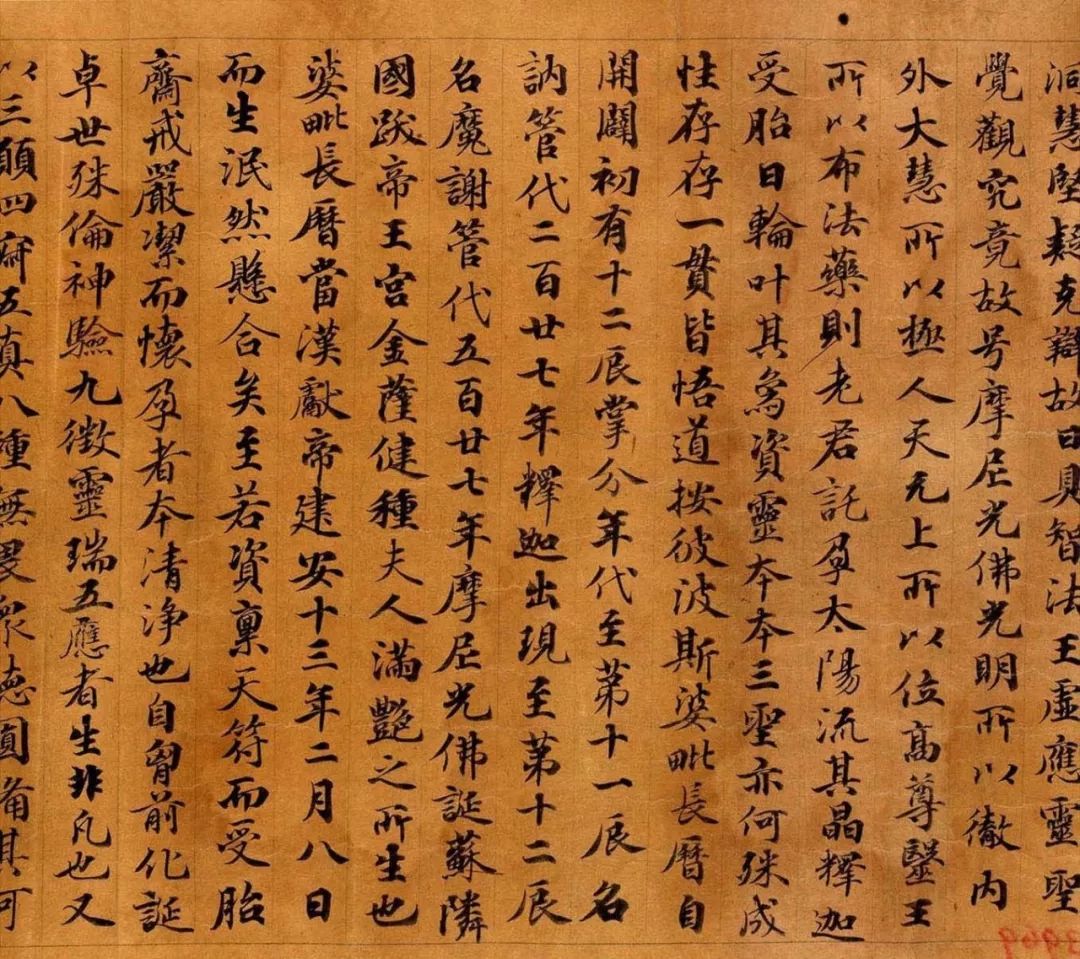 洞慧堅疑克辯故曰具智法王虛應靈聖
覺觀究竟故号摩尼光佛光明所以徹內
外大慧所以極人天无上所以位高尊毉王
所以布法藥則老君託孕太陽流其晶釋迦
受胎日輪叶其象資靈本本三聖亦何殊成
性存存一貫皆悟道按彼波斯婆毗長曆自
開闢初有十二辰掌分年代至第十一辰名
訥管代二百廿七年釋迦出現至第十二辰
名魔謝管代五百廿七年摩尼光佛誕蘇隣
國跋帝王宮金薩健種夫人滿艷之所生也
婆毗長曆當漢獻帝建安十三年二月八日
而生泯然懸合矣至若資稟天符而受胎
齋戒嚴潔而懷孕者本清淨也自胷前化誕
卓世殊倫神驗九徵靈瑞五應者生非凡也又
以三願四寂五真八種無畏眾德圓備其可